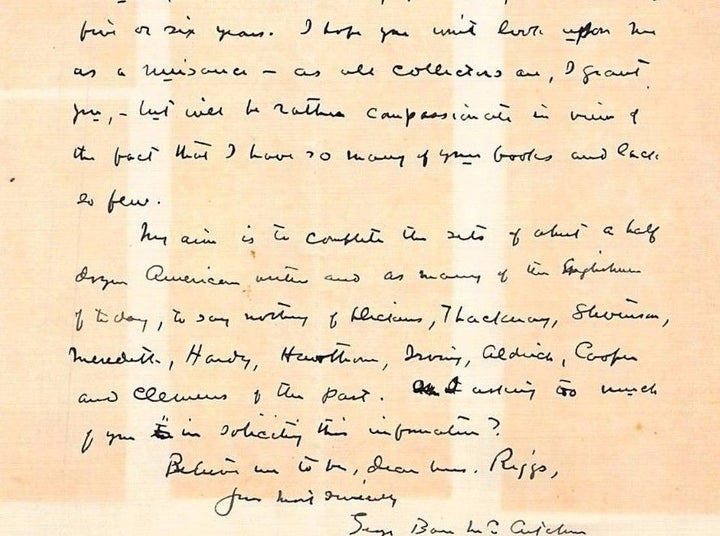 five or six years. I hope you won't look upon me
as a nuisance – as all collectors are, I grant
you, – but will be rather compassionate in view of
the fact that I have so many of your books and lack
so few.
My aim is to complete the sets of about a half
dozen American writers and as many of the Englishmen
of today, to say nothing of Dickens, Thackeray, Stevenson,
Meredith, Hardy, Hawthorne, Irving, Aldrich, Cooper
and Clemens of the past. Am I asking too much
of you in soliciting this information?
Believe me to be, dear Mrs. Riggs,
Yours most sincerely
George Barr McCutcheon